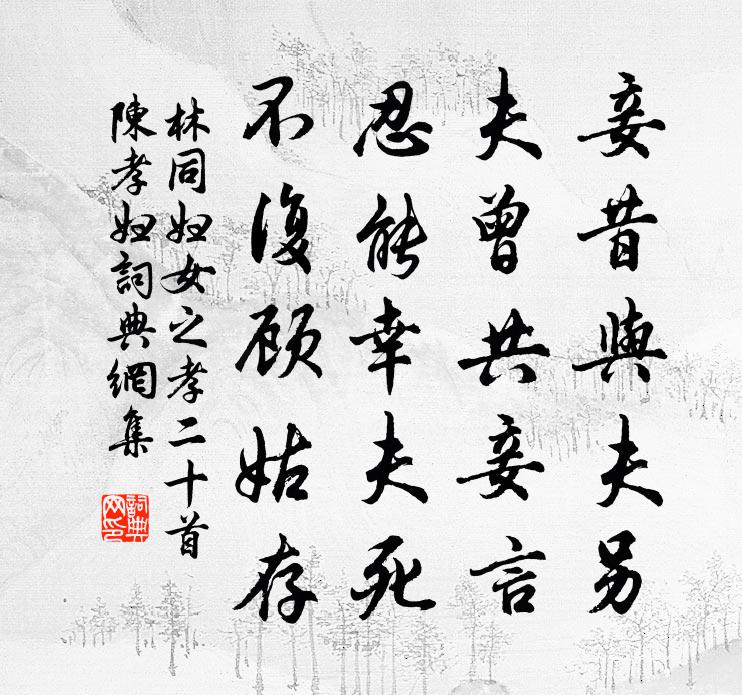 妾昔與夫另
夫曾共妾言
忍能幸夫死
不復顾姑存
林同妇女之孝二十首
陳孝妇詞典網集
詞典网印